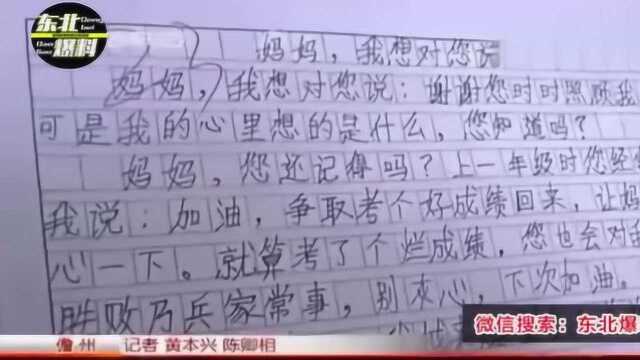 东北
爆料
妈妈，我想对您说
妈妈，我想对您说：谢谢您时时照顾我
可是我的心里想的是什么，您知道吗？
妈妈，您还记得吗？上一年级时您经
我说：加油，争取考个好成绩回来，让妈
心一下。就算考了个烂成绩，您也会对我
胜败乃兵家常事，别灰心，下次加油。
微信搜索：东北爆
儋州 记者 黄本兴 陈卿相